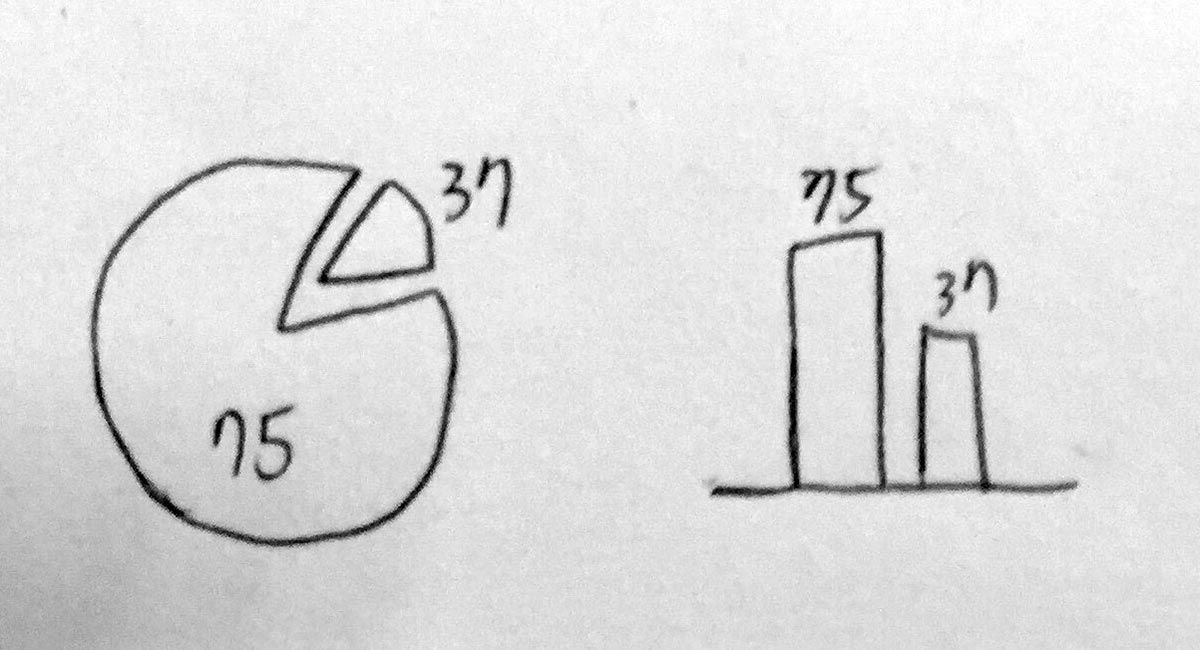 37
75
75
37